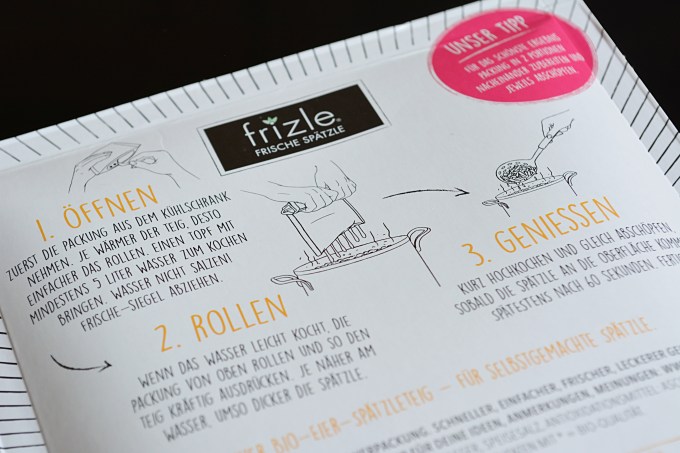 UNSER TIPP
FÜR DAS SCHÖNSTE ERGEBNIS
PACKUNG IN 2 PORTIONEN
NACHEINANDER ZUBEREITEN UND
JEWEILS ABSCHÖPFEN.
frizle
FRISCHE SPÄTZLE
1. ÖFFNEN
ZUERST DIE PACKUNG AUS DEM KÜHLSCHRANK
NEHMEN. JE WÄRMER DER TEIG, DESTO
EINFACHER DAS ROLLEN. EINEN TOPF MIT
MINDESTENS 5 LITER WASSER ZUM KOCHEN
BRINGEN. WASSER NICHT SALZEN!
FRISCHE-SIEGEL ABZIEHEN.
2. ROLLEN
WENN DAS WASSER LEICHT KOCHT, DIE
PACKUNG VON OBEN ROLLEN UND SO DEN
TEIG KRÄFTIG AUSDRÜCKEN. JE NÄHER AM
WASSER, UMSO DICKER DIE SPÄTZLE.
3. GENIESSEN
KURZ HOCHKOCHEN UND GLEICH ABSCHÖPFEN
SOBALD DIE SPÄTZLE AN DIE OBERFLÄCHE KOMM
SPÄTESTENS NACH 60 SEKUNDEN. FERTI
BIO-EIER-SPÄTZLETEIG – FÜR SELBSTGEMACHTE SPÄTZLE
VERPACKUNG. SCHNELLER, EINFACHER, FRISCHER, LECKERER
FÜR DEINE IDEEN, ANMERKUNGEN, MEINUNGEN:
SPEISESALZ, ANTIOXIDATIONSMITTEL
= BIO-QUALITÄT